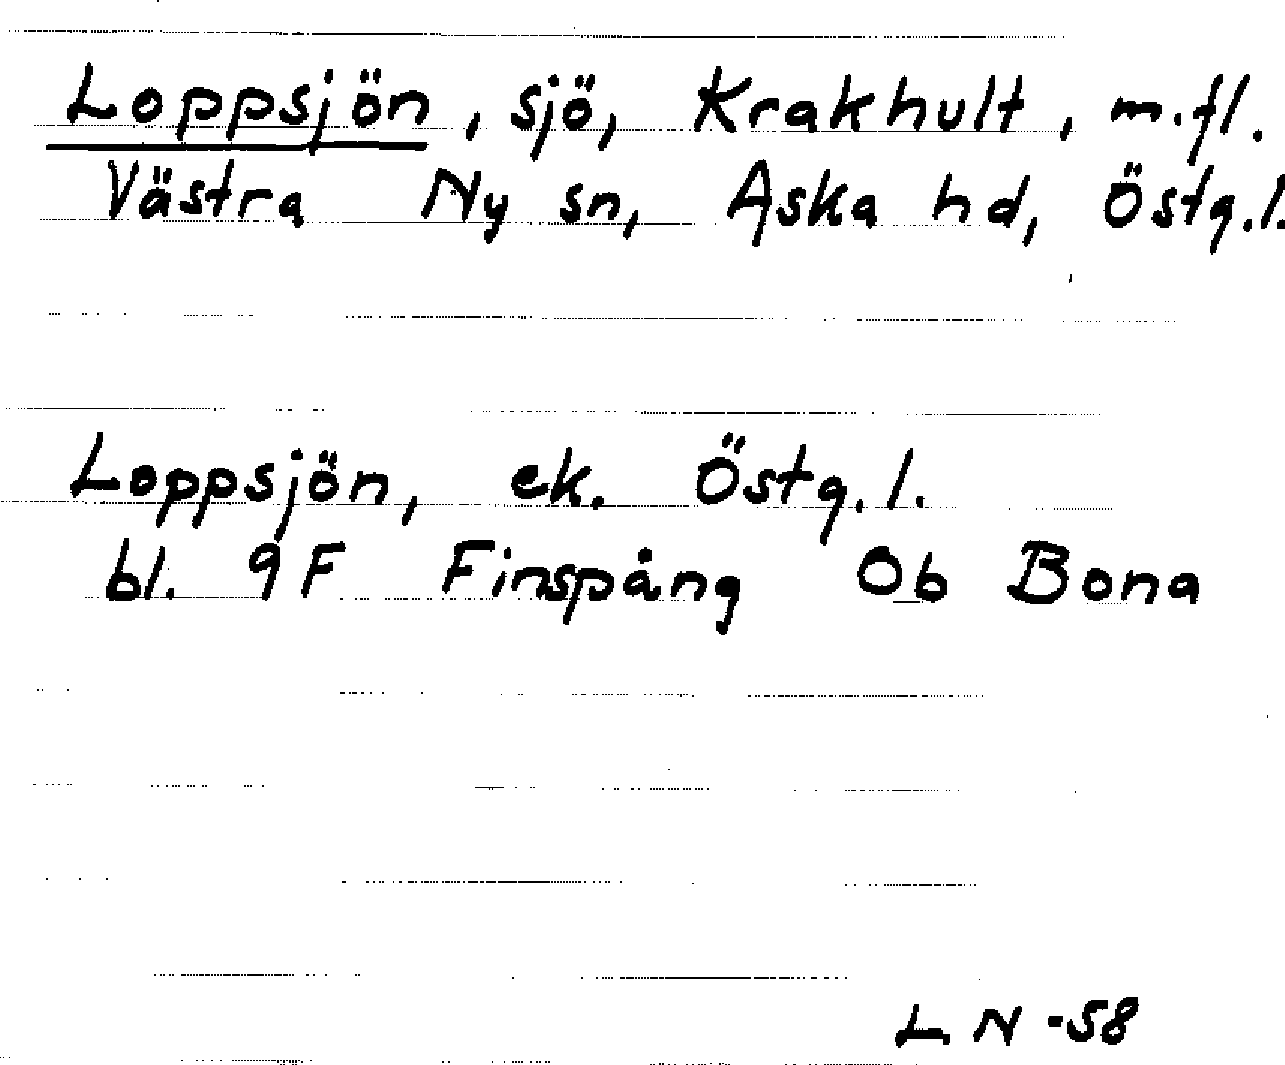 Loppsjön, sjö, Krakhult, m.fl.
Västra Ny sn, Aska hd, Östg.l.
Loppsjön, ek. Östg.l.
bl. 9F Finspång 0b Bona
L N -58